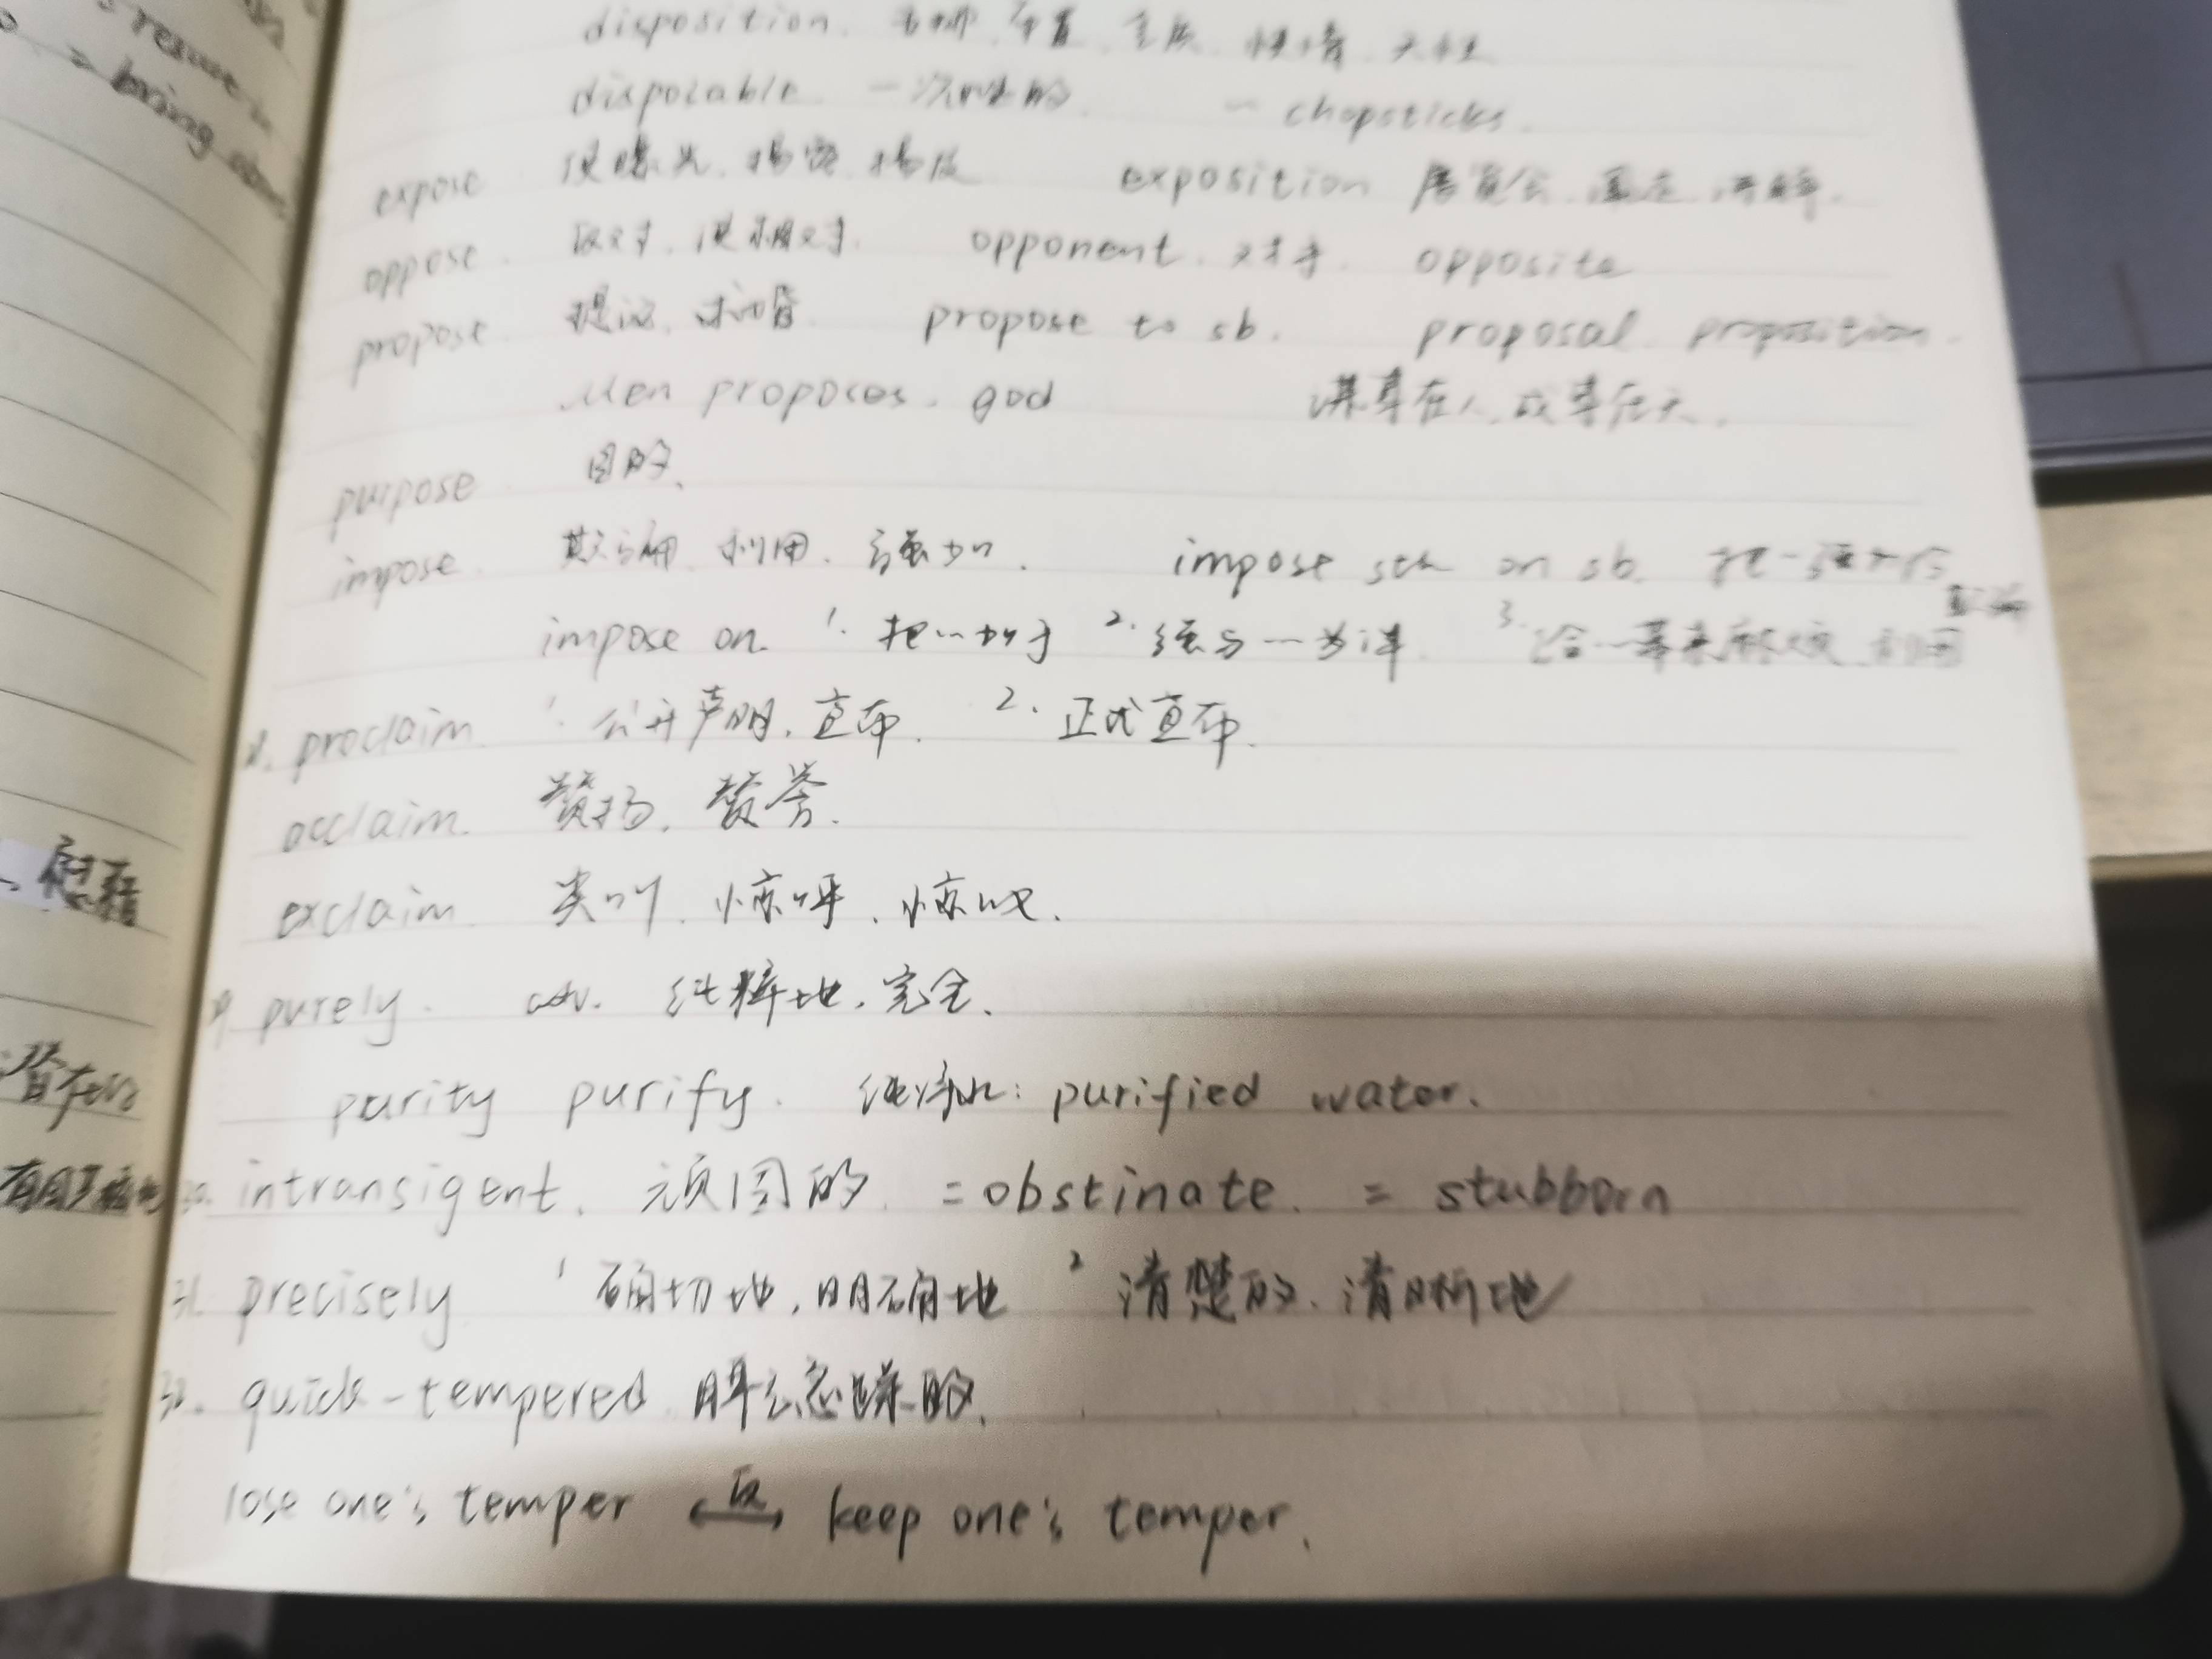 result in
= bring about
慰藉
潜在的
disposition. 安排. 布置. 气质. 性情. 天性
disposable. 一次性的. ~ chopsticks.
expose 使曝光. 揭露. 揭发 exposition 展览会. 讲解.
oppose. 反对. 使相对. opponent. 对手. opposite
propose. 提议. 求婚 propose to sb. proposal. proposition.
Men proposes. god 谋事在人, 成事在天.
purpose 目的.
impose. 欺骗. 利用. 强加. impose sth on sb. 把…强加给
impose on. 1. 把…加于 2. 强与…为伴 3. 给…带来麻烦 利用
proclaim 1. 公开声明. 宣布. 2. 正式宣布.
acclaim. 赞扬. 赞誉.
exclaim. 尖叫. 惊呼. 惊叹.
purely. adv. 纯粹地. 完全.
purity purify. 纯净水: purified water.
30. intransigent. 顽固的. = obstinate. = stubborn
31. precisely 1 确切地, 明确地 2 清楚的. 清晰地
32. quick-tempered. 脾气急躁的.
lose one's temper ⟷反 keep one's temper.